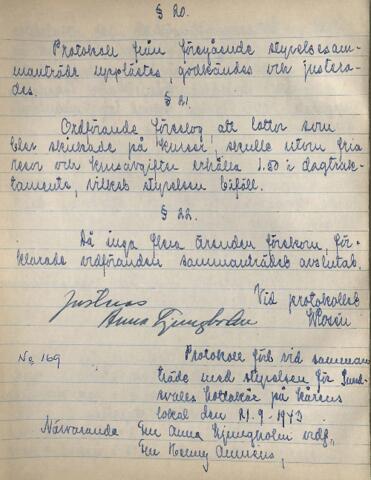 § 20.
Protokoll från föregående styrelsesam-
manträde upplästes, godkändes och justera-
des.
§ 21.
Ordförande föreslog, att lottor som
blev skickade på kurser, skulle utom fria
resor och kursavgifter erhålla 1.50 i dagtrak-
tamente, vilket styrelsen biföll.
§ 22.
Då inga flera ärenden förekom, för-
klarade ordföranden sammanträdet avslutat.
Justeras
Vid protokollet
Anna Ljungholm
No 169
Protokoll fört vid samman
träde med styrelsen för Sund-
svalls Lottakår på kårens
lokal den 21.9-1943
Närvarande Fru Anna Ljungholm ordf.,
Fru Henny